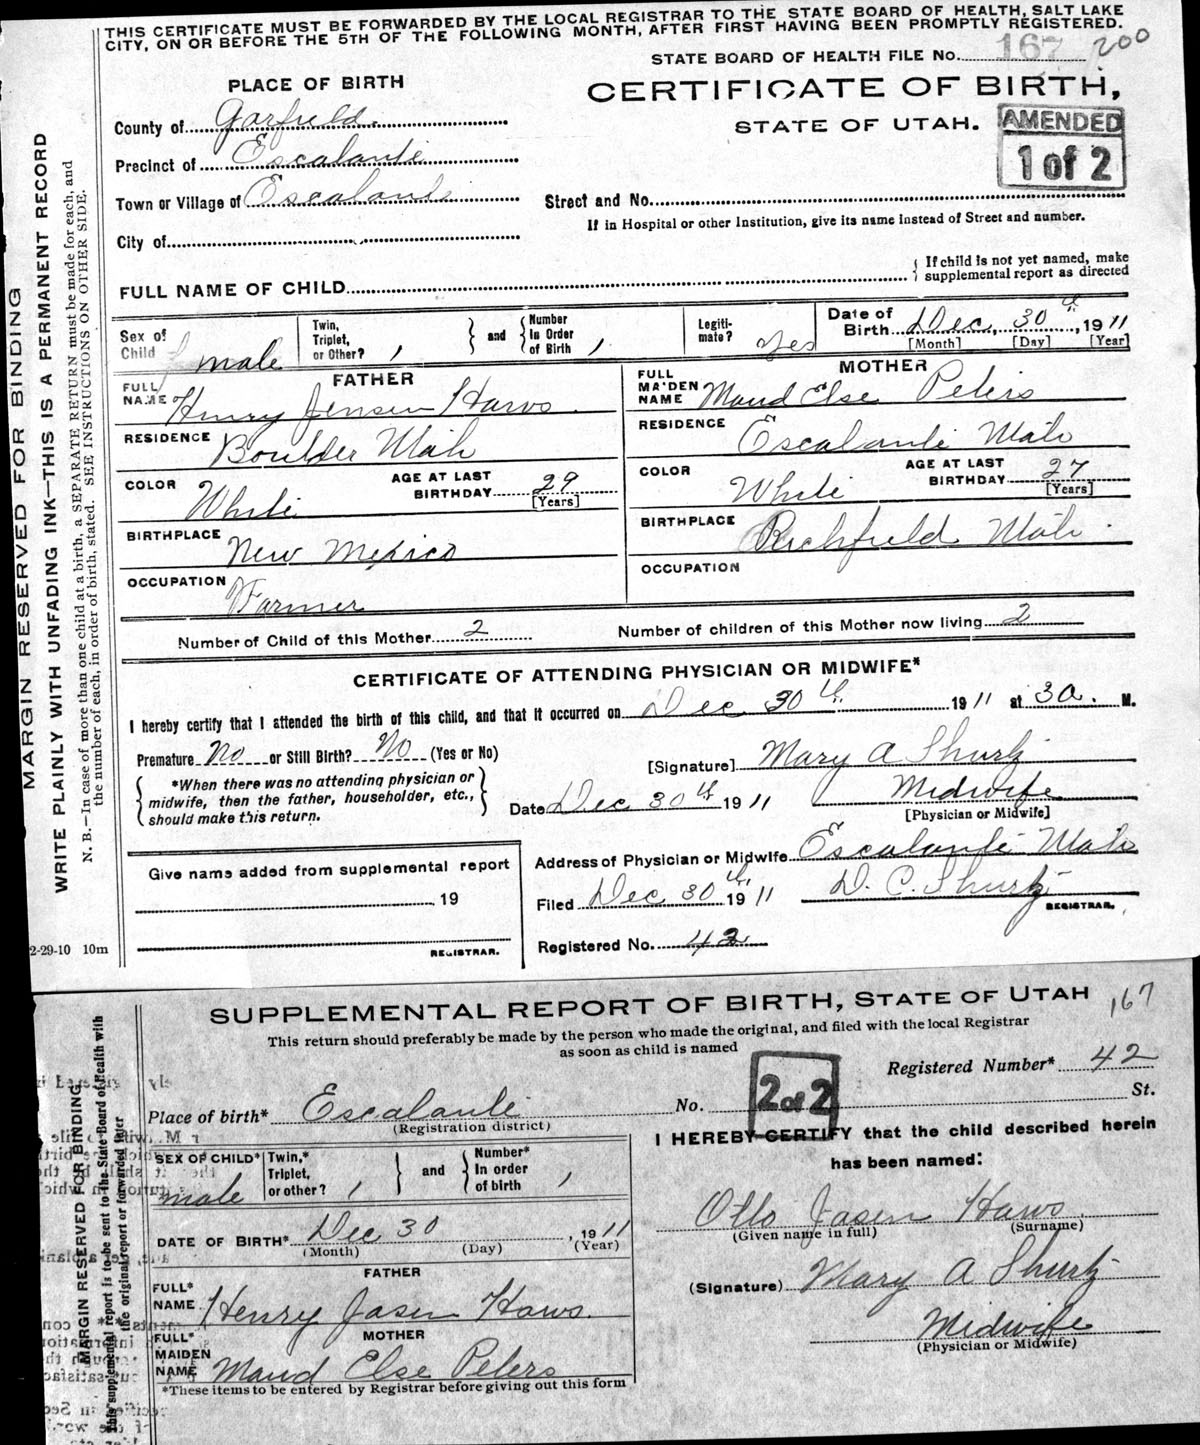 THIS CERTIFICATE MUST BE FORWARDED BY THE LOCAL REGISTRAR TO THE STATE BOARD OF HEALTH, SALT LAKE
CITY, ON OR BEFORE THE 5TH OF THE FOLLOWING MONTH, AFTER FIRST HAVING BEEN PROMPTLY REGISTERED.
STATE BOARD OF HEALTH FILE No. 167 200
PLACE OF BIRTH
CERTIFICATE OF BIRTH,
STATE OF UTAH.
AMENDED
1 of 2
County of Garfield.
Precinct of Escalante
Town or Village of Escalante
Street and No.
If in Hospital or other Institution, give its name instead of Street and number.
City of
FULL NAME OF CHILD
If child is not yet named, make
supplemental report as directed
Sex of Child male
Twin, Triplet, or Other? 1 and Number In Order of Birth 1
Legiti-mate? yes
Date of Birth Dec, 30th, 1911
[Month] [Day] [Year]
FATHER
FULL NAME Henry Jensen Haws.
RESIDENCE Boulder Utah
COLOR White
AGE AT LAST BIRTHDAY 29 [Years]
BIRTHPLACE New Mexico
OCCUPATION Farmer
MOTHER
FULL MAIDEN NAME Maud Else Peters
RESIDENCE Escalante Utah
COLOR White
AGE AT LAST BIRTHDAY 27 [Years]
BIRTHPLACE Richfield Utah.
OCCUPATION
Number of Child of this Mother 2
Number of children of this Mother now living 2
CERTIFICATE OF ATTENDING PHYSICIAN OR MIDWIFE*
I hereby certify that I attended the birth of this child, and that it occurred on Dec 30th 1911 at 3 a. M.
Premature No or Still Birth? No (Yes or No)
*When there was no attending physician or
midwife, then the father, householder, etc.,
should make this return.
[Signature] Mary A Shurtz
Midwife
[Physician or Midwife]
Date Dec 30th 1911
Give name added from supplemental report
19
REGISTRAR.
Address of Physician or Midwife Escalante Utah
Filed Dec 30th, 1911
D. C. Shurtz
REGISTRAR.
Registered No. 42
MARGIN RESERVED FOR BINDING
WRITE PLAINLY WITH UNFADING INK—THIS IS A PERMANENT RECORD
N. B.—In case of more than one child at a birth, a SEPARATE RETURN must be made for each, and
the number of each, in order of birth, stated. SEE INSTRUCTIONS ON OTHER SIDE.
2-29-10 10m
SUPPLEMENTAL REPORT OF BIRTH, STATE OF UTAH 167
This return should preferably be made by the person who made the original, and filed with the local Registrar
as soon as child is named
2 of 2
Registered Number* 42
Place of birth* Escalante
(Registration district)
No. St.
SEX OF CHILD* male
Twin,* Triplet, or other? 1 and Number* In order of birth 1
DATE OF BIRTH* Dec 30, 1911
(Month) (Day) (Year)
FATHER
FULL* NAME Henry Jasen Haws.
MOTHER
FULL* MAIDEN NAME Maud Else Peters
*These items to be entered by Registrar before giving out this form
I HEREBY CERTIFY that the child described herein
has been named:
Otto Jasen Haws.
(Given name in full) (Surname)
(Signature) Mary A Shurtz
Midwife
(Physician or Midwife)
MARGIN RESERVED FOR BINDING
This supplemental report is to be sent to the State Board of Health with
the original report or forwarded later